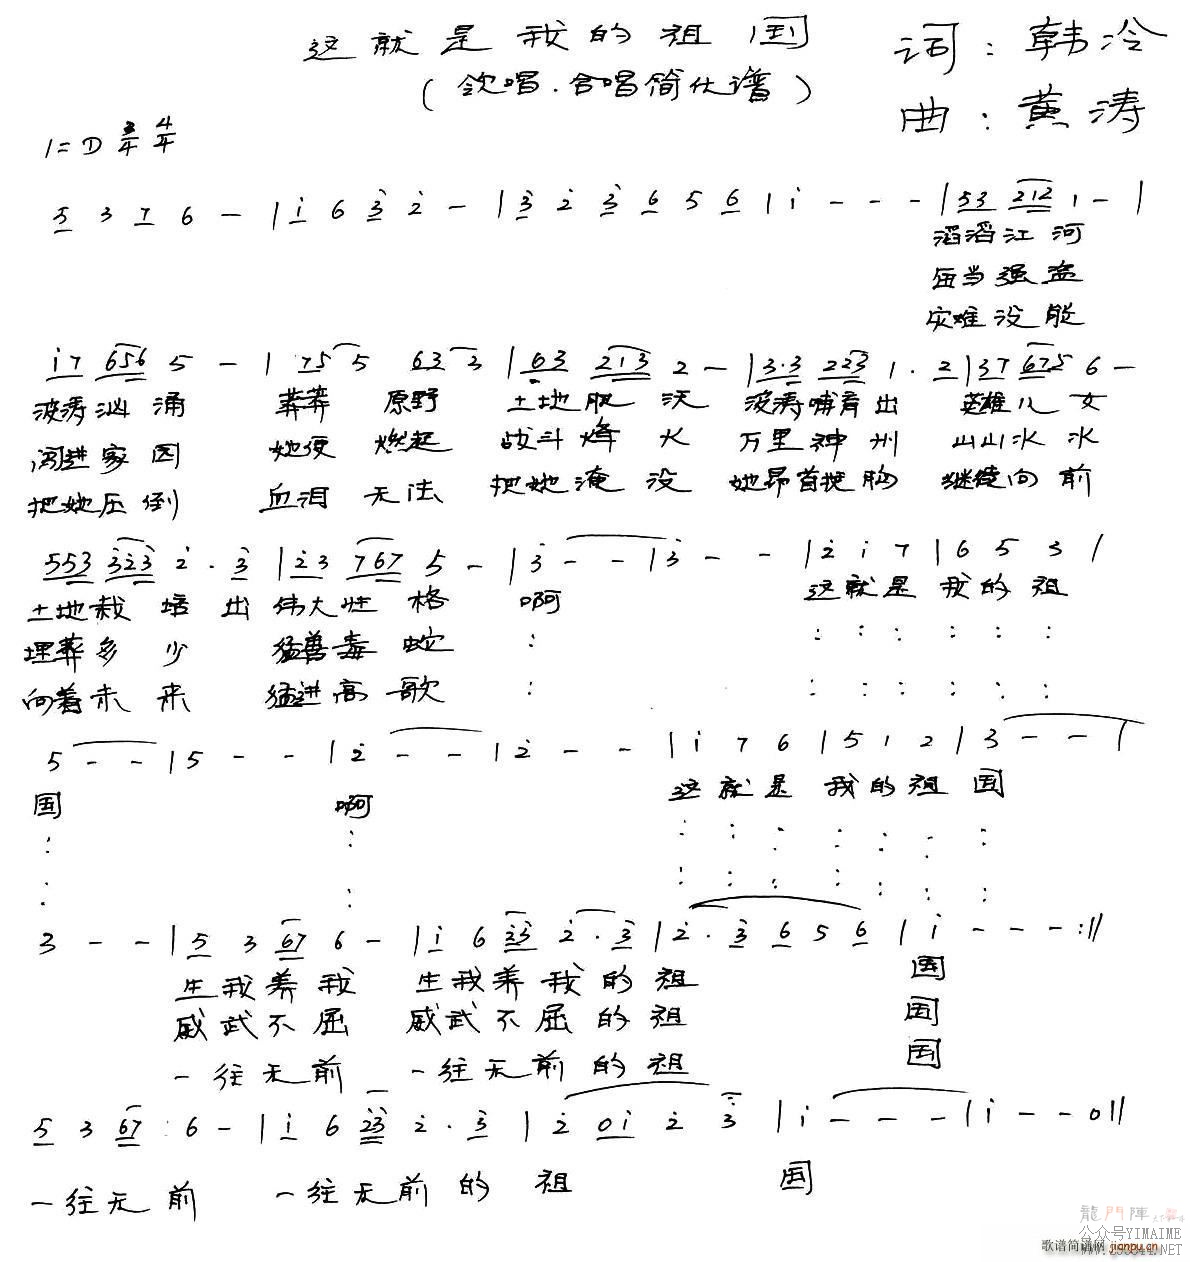 这就是我的祖国
词：韩冷
(领唱.合唱简化谱)
曲：黄涛
1=D 3/4 4/4
5 3 7 6 - | i 6 3 2 - | 3 2 3 6 5 6 | i - - - | 53 212 1 - |
滔滔江河
每当强盗
灾难没能
i7 656 5 - | 75 5 63 3 | 63 213 2 - | 3.3 223 1 . 2 | 37 675 6 -
波涛汹涌 莽莽原野 土地肥沃 波涛哺育出 英雄儿女
闯进家园 她便燃起 战斗烽火 万里神州 山山水水
把她压倒 血泪无法 把她淹没 她昂首挺胸 继续向前
553 323 2 . 3 | 23 767 5 - | 3 - - | 3 - - | 2 i 7 | 6 5 3 |
土地栽培出伟大性格 啊 这就是我的祖
埋葬多少 猛兽毒蛇 : : : : : : :
向着未来 猛进高歌 : : : : : : :
5 - - | 5 - - | 2 - - | 2 - - | i 7 6 | 5 1 2 | 3 - - |
国 啊 这就是我的祖国
3 - - | 5 3 67 6 - | i 6 23 2 . 3 | 2 . 3 6 5 6 | i - - - :||
生我养我 生我养我的祖 国
威武不屈 威武不屈的祖 国
一往无前 一往无前的祖 国
5 3 67 6 - | i 6 23 2 . 3 | 2 0i 2 3 | i - - - | i - - 0 ||
一往无前 一往无前的祖 国
龍門陣
公众号YIMAIME
歌谱简谱网 jianpu.cn